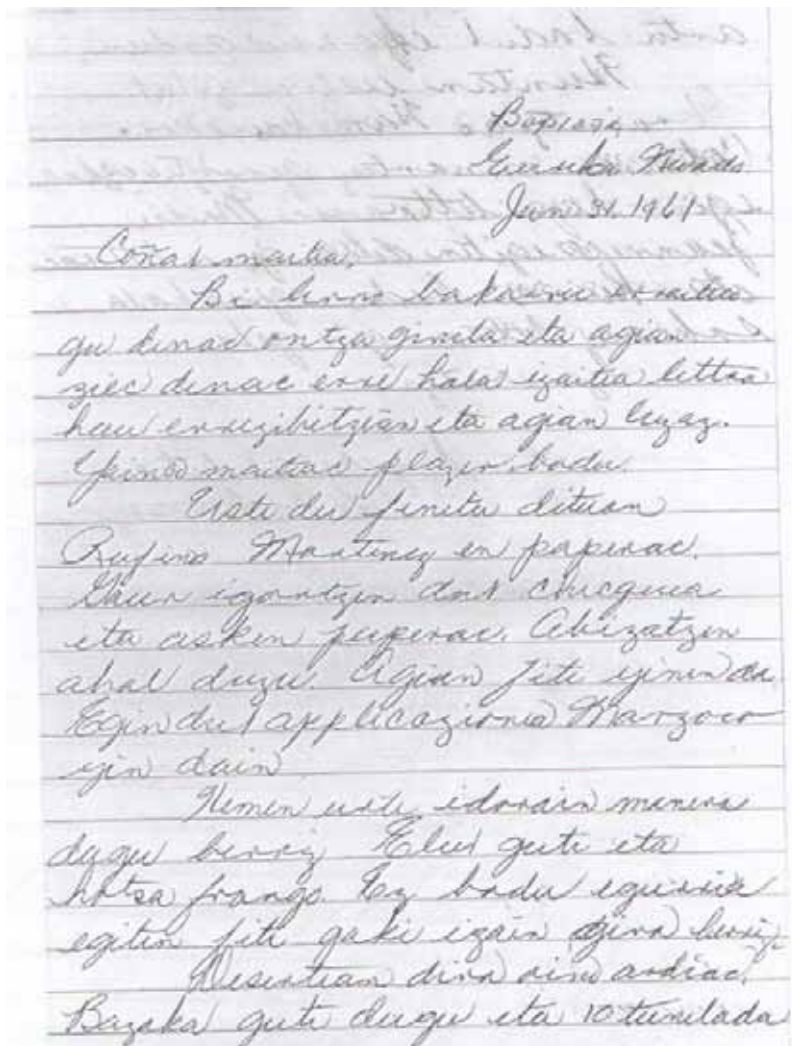 Eureka Nevada
Jan 31, 1961
Coñat maitia,
Bi lerro bakarric erraiteco
gu denac ontza girela eta agian
ziec denac ere hala izaitia lettra
hau errezibitzian eta agian luzaz.
Yainco maitiac plazer badu.
Uste dut finitu dituan
Rufino Martinez en paperac.
Gaur igortzen dut
eta asken paperac. Abizatzen
ahal duzu. Agian fite yinen da
Egin dut applicazionia Marzoco
yin dain
Hemen urte idorrain manera
dugu berriz Elur guti eta
hotza frango. Ez badu eguria
egiten fite gaki izain gira berriz
Desertian dira oino ardiac.
Bazka guti dugu eta 10 tunelada